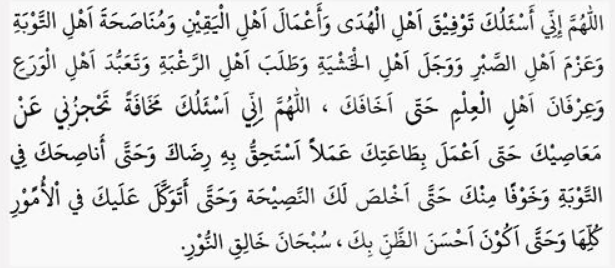 اللّٰهُمَّ إِنِّي أَسْئَلُكَ تَوْفِيْقَ اَهْلِ الْهُدَى وَأَعْمَالَ اَهْلِ الْيَقِيْنِ وَمُنَاصَحَةَ اَهْلِ التَّوْبَةِ
وَعَزْمَ اَهْلِ الصَّبْرِ وَوَجَلَ اَهْلِ الْخَشْيَةِ وَطَلَبَ اَهْلِ الرَّغْبَةِ وَتَعَبُّدَ اَهْلِ الْوَرَعِ
وَعِرْفَانَ اَهْلِ الْعِلْمِ حَتَّى اَخَافَكَ ، اللّٰهُمَّ اِنِّي اَسْئَلُكَ مَخَافَةً تَحْجِزُنِي عَنْ
مَعَاصِيْكَ حَتَّى اَعْمَلَ بِطَاعَتِكَ عَمَلاً اَسْتَحِقُّ بِهِ رِضَاكَ وَحَتَّى أُنَاصِحَكَ فِي
التَّوْبَةِ وَخَوْفًا مِنْكَ حَتَّى اَخْلِصَ لَكَ النَّصِيْحَةَ وَحَتَّى أَتَوَكَّلَ عَلَيْكَ فِي الْأُمُوْرِ
كُلِّهَا وَحَتَّى اَكُوْنَ اَحْسَنَ الظَّنِّ بِكَ ، سُبْحَانَ خَالِقِ النُّوْرِ.